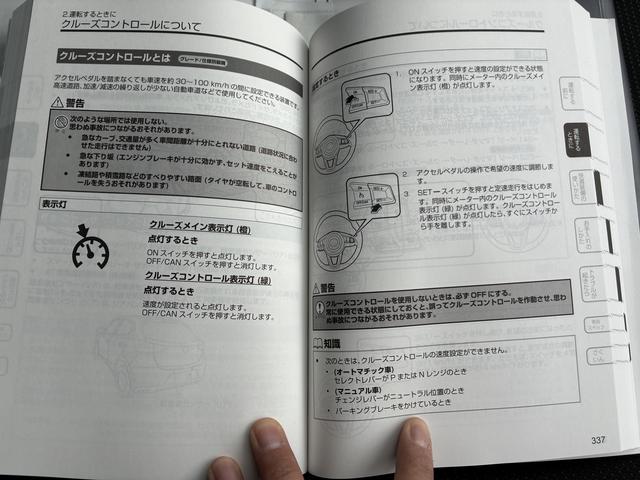 2.運転するときに
クルーズコントロールについて
クルーズコントロールとは グレード/仕様別装備
アクセルペダルを踏まなくても車速を約30〜100 km/hの間に設定できる装置です。
高速道路、加速/減速の繰り返しが少ない自動車道などで使用してください。
警告
次のような場所では使用しない。
思わぬ事故につながるおそれがあります。
• 急なカーブ、交通量が多く車間距離が十分にとれない道路(道路状況に合わ
せた走行はできません)
• 急な下り坂(エンジンブレーキが十分に効かず、セット速度をこえることが
あります)
• 凍結路や積雪路などのすべりやすい路面(タイヤが空転して、車のコントロ
ールを失うおそれがあります)
表示灯
クルーズメイン表示灯(橙)
点灯するとき
ONスイッチを押すと点灯します。
OFF/CANスイッチを押すと消灯します。
クルーズコントロール表示灯(緑)
点灯するとき
速度が設定されると点灯します。
OFF/CANスイッチを押すと消灯します。
するとき
1. ONスイッチを押すと速度の設定ができる状態
になります。同時にメーター内のクルーズメイ
ン表示灯(橙)が点灯します。
2. アクセルペダルの操作で希望の速度に調節しま
す。
3. SETースイッチを押すと定速走行をはじめま
す。同時にメーター内のクルーズコントロール
表示灯(緑)が点灯します。クルーズコントロー
ル表示灯(緑)が点灯したら、すぐにスイッチか
ら手を離します。
警告
クルーズコントロールを使用しないときは、必ずOFFにする。
常に使用できる状態にしておくと、誤ってクルーズコントロールを作動させ、思わ
ぬ事故につながるおそれがあります。
知識
• 次のときは、クルーズコントロールの速度設定ができません。
• (オートマチック車)
セレクトレバーがPまたはNレンジのとき
• (マニュアル車)
チェンジレバーがニュートラル位置のとき
• パーキングブレーキをかけているとき
運転する
ときに
さく
いん
337